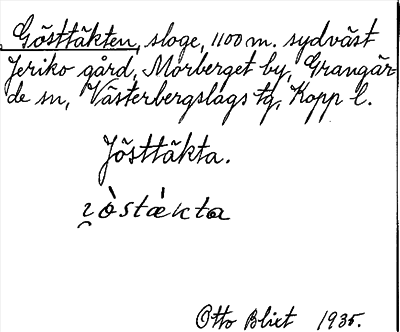 Gösttäkten, sloge, 1100 m. sydväst
Jeriko gård, Morberget by, Grangär-
de sn, Västerbergslags tg, Kopp l.
Jösttäkta.
Otto Blixt 1935.